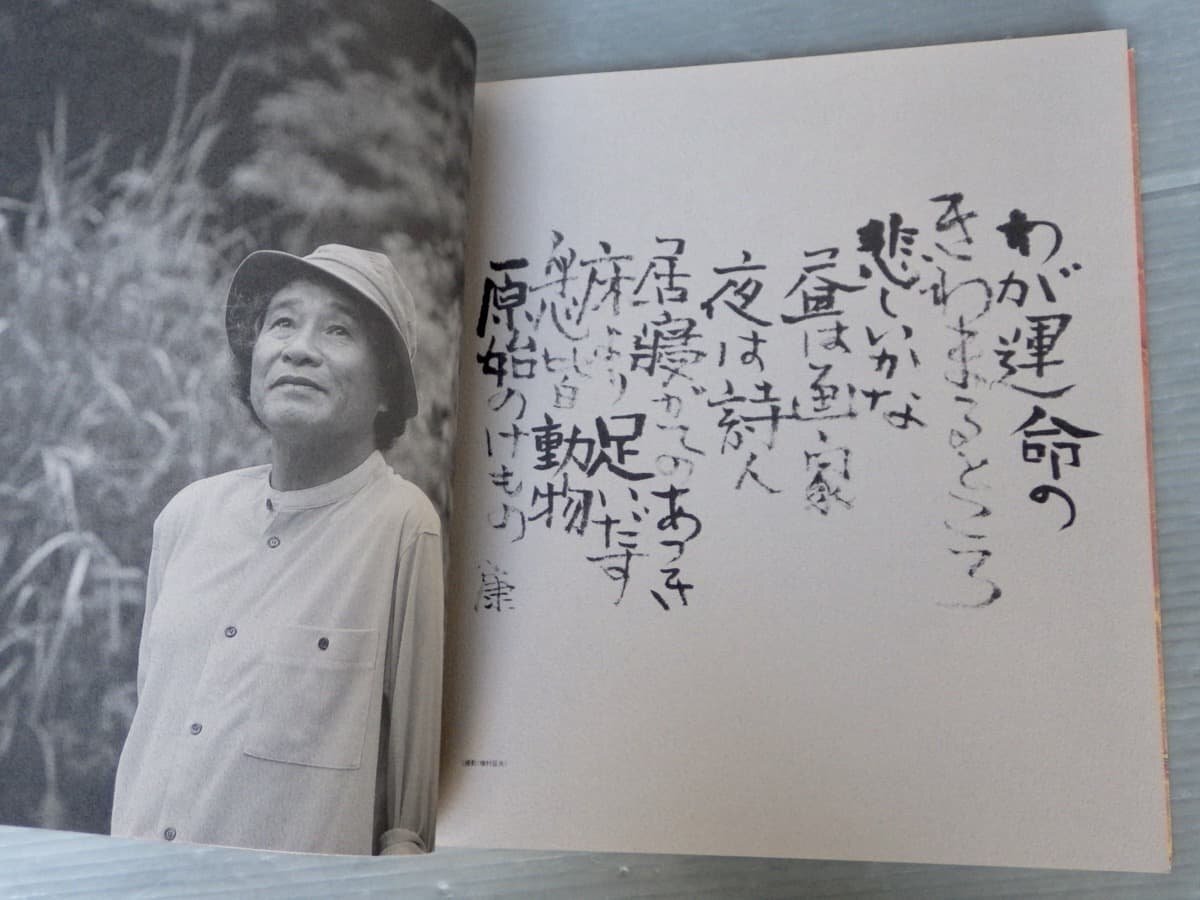 わが運命の
きわまるところ
悲しいかな
昼は画家
夜は詩人
居寝がてのあつき
床より足いだす
皆動物
原始のけもの 康